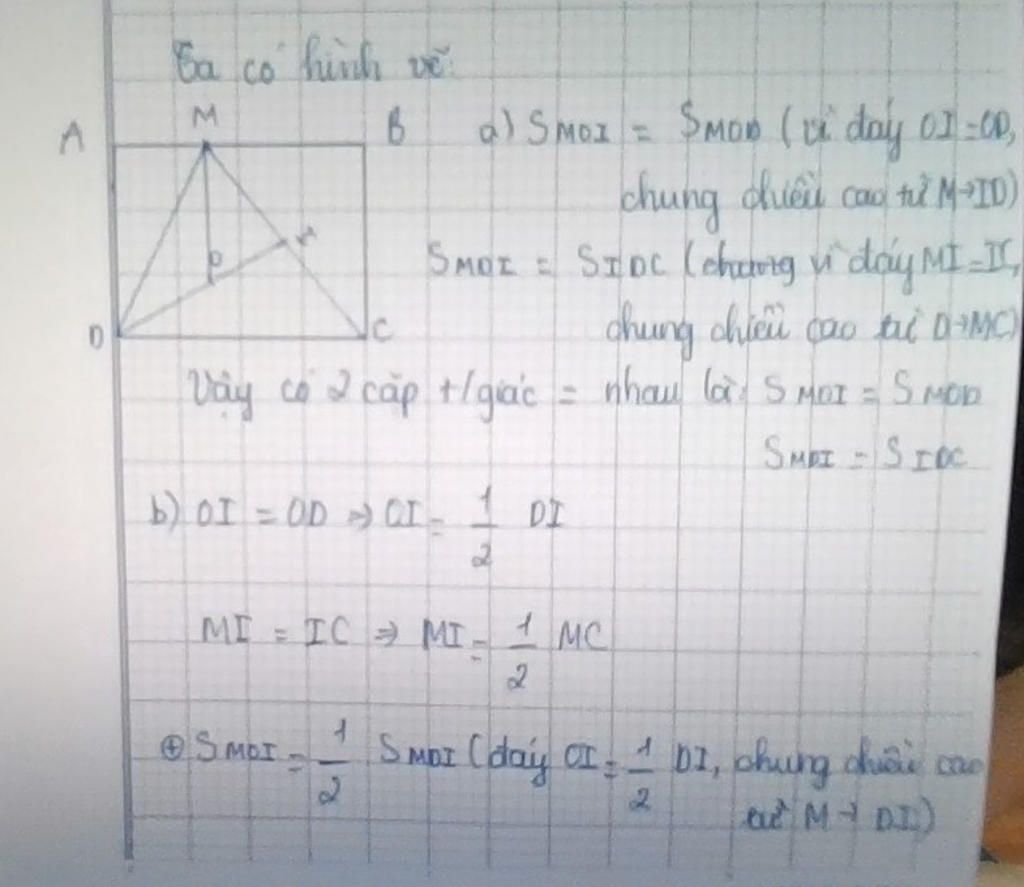 Ta có hình vẽ:
M
A B a) SMOI = SMOD (vì đáy OI = OD,
chung chiều cao từ M→ID)
I
SMDI = SIDC (chung vì đáy MI = IC,
O
chung chiều cao từ D→MC)
D C
Vậy có 2 cặp t/giác = nhau là: SMOI = SMOD
SMDI = SIDC
b) OI = OD ⇒ OI = 1/2 DI
MI = IC ⇒ MI = 1/2 MC
⊕ SMOI = 1/2 SMDI (đáy OI = 1/2 DI, chung chiều cao
từ M → DI)